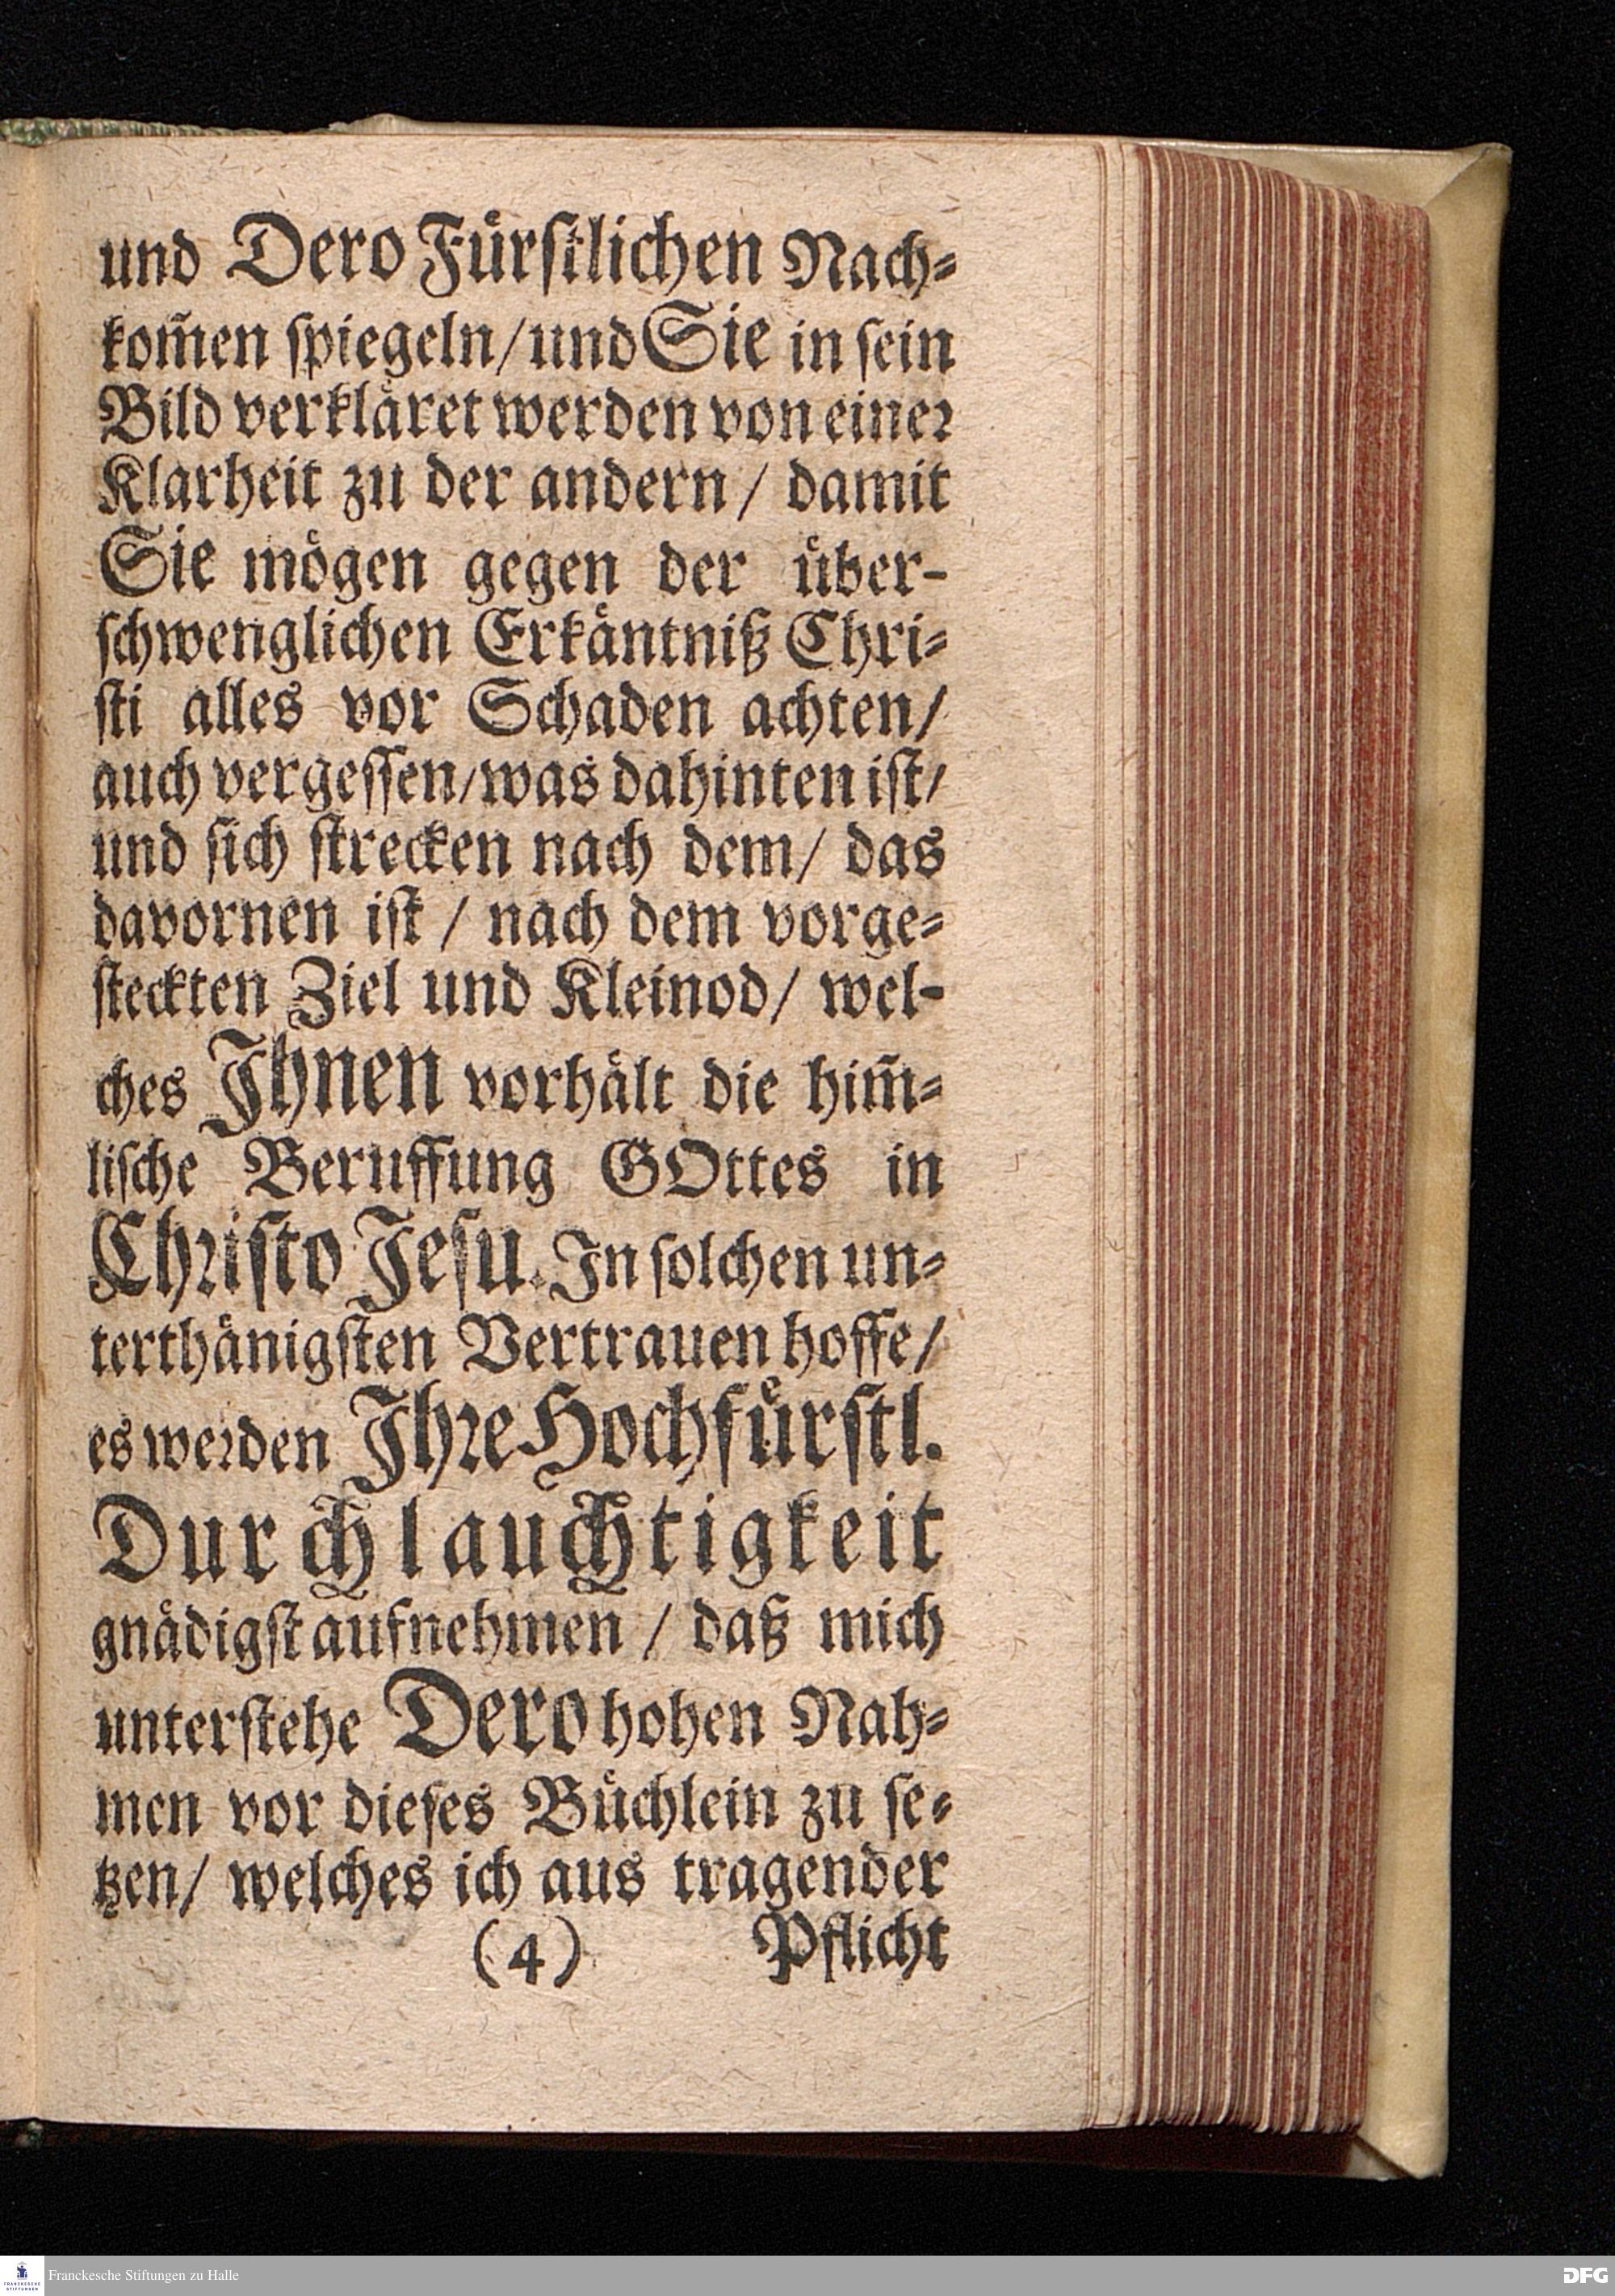 und Dero Fuͤrſtlichen Nach⸗
kom̃en ſpiegeln/und Sie in ſein
Bild verklaͤret werden von eineꝛ
Klarheit zu der andern/ damit
Sie moͤgen gegen der uͤber-
ſchwenglichen Erkaͤntniß Chri⸗
ſti alles vor Schaden achten/
auch vergeſſen/was dahinten iſt/
und ſich ſtrecken nach dem/ das
davornen iſt / nach dem vorge⸗
ſteckten Ziel und Kleinod/ wel-
ches Ihnen vorhaͤlt die him̃⸗
liſche Beruffung GOttes in
Chꝛiſto Jeſu. In ſolchen un⸗
terthaͤnigſten Vertrauen hoffe/
es weꝛden Ihꝛe Hochfuͤrſtl.
Durchlauchtigkeit
gnaͤdigſt aufnehmen / daß mich
unterſtehe Dero hohen Nah⸗
men vor dieſes Buͤchlein zu ſe⸗
tzen/ welches ich aus tragender
(4) Pflicht
FRANCKESCHE STIFTUNGEN
Franckesche Stiftungen zu Halle
DFG